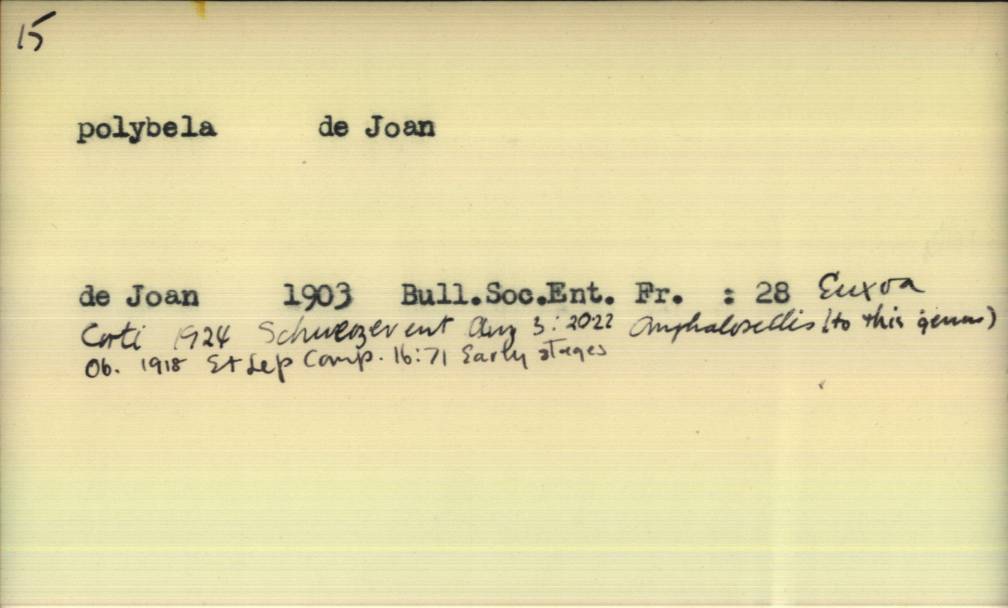 15
polybela de Joan
de Joan 1903 Bull.Soc.Ent. Fr. : 28 Euxoa
Corti 1924 Schweizer ent Anz 3: 2022 (to this genus)
Ob. 1918 Et Lep Comp. 16:71 Early stages